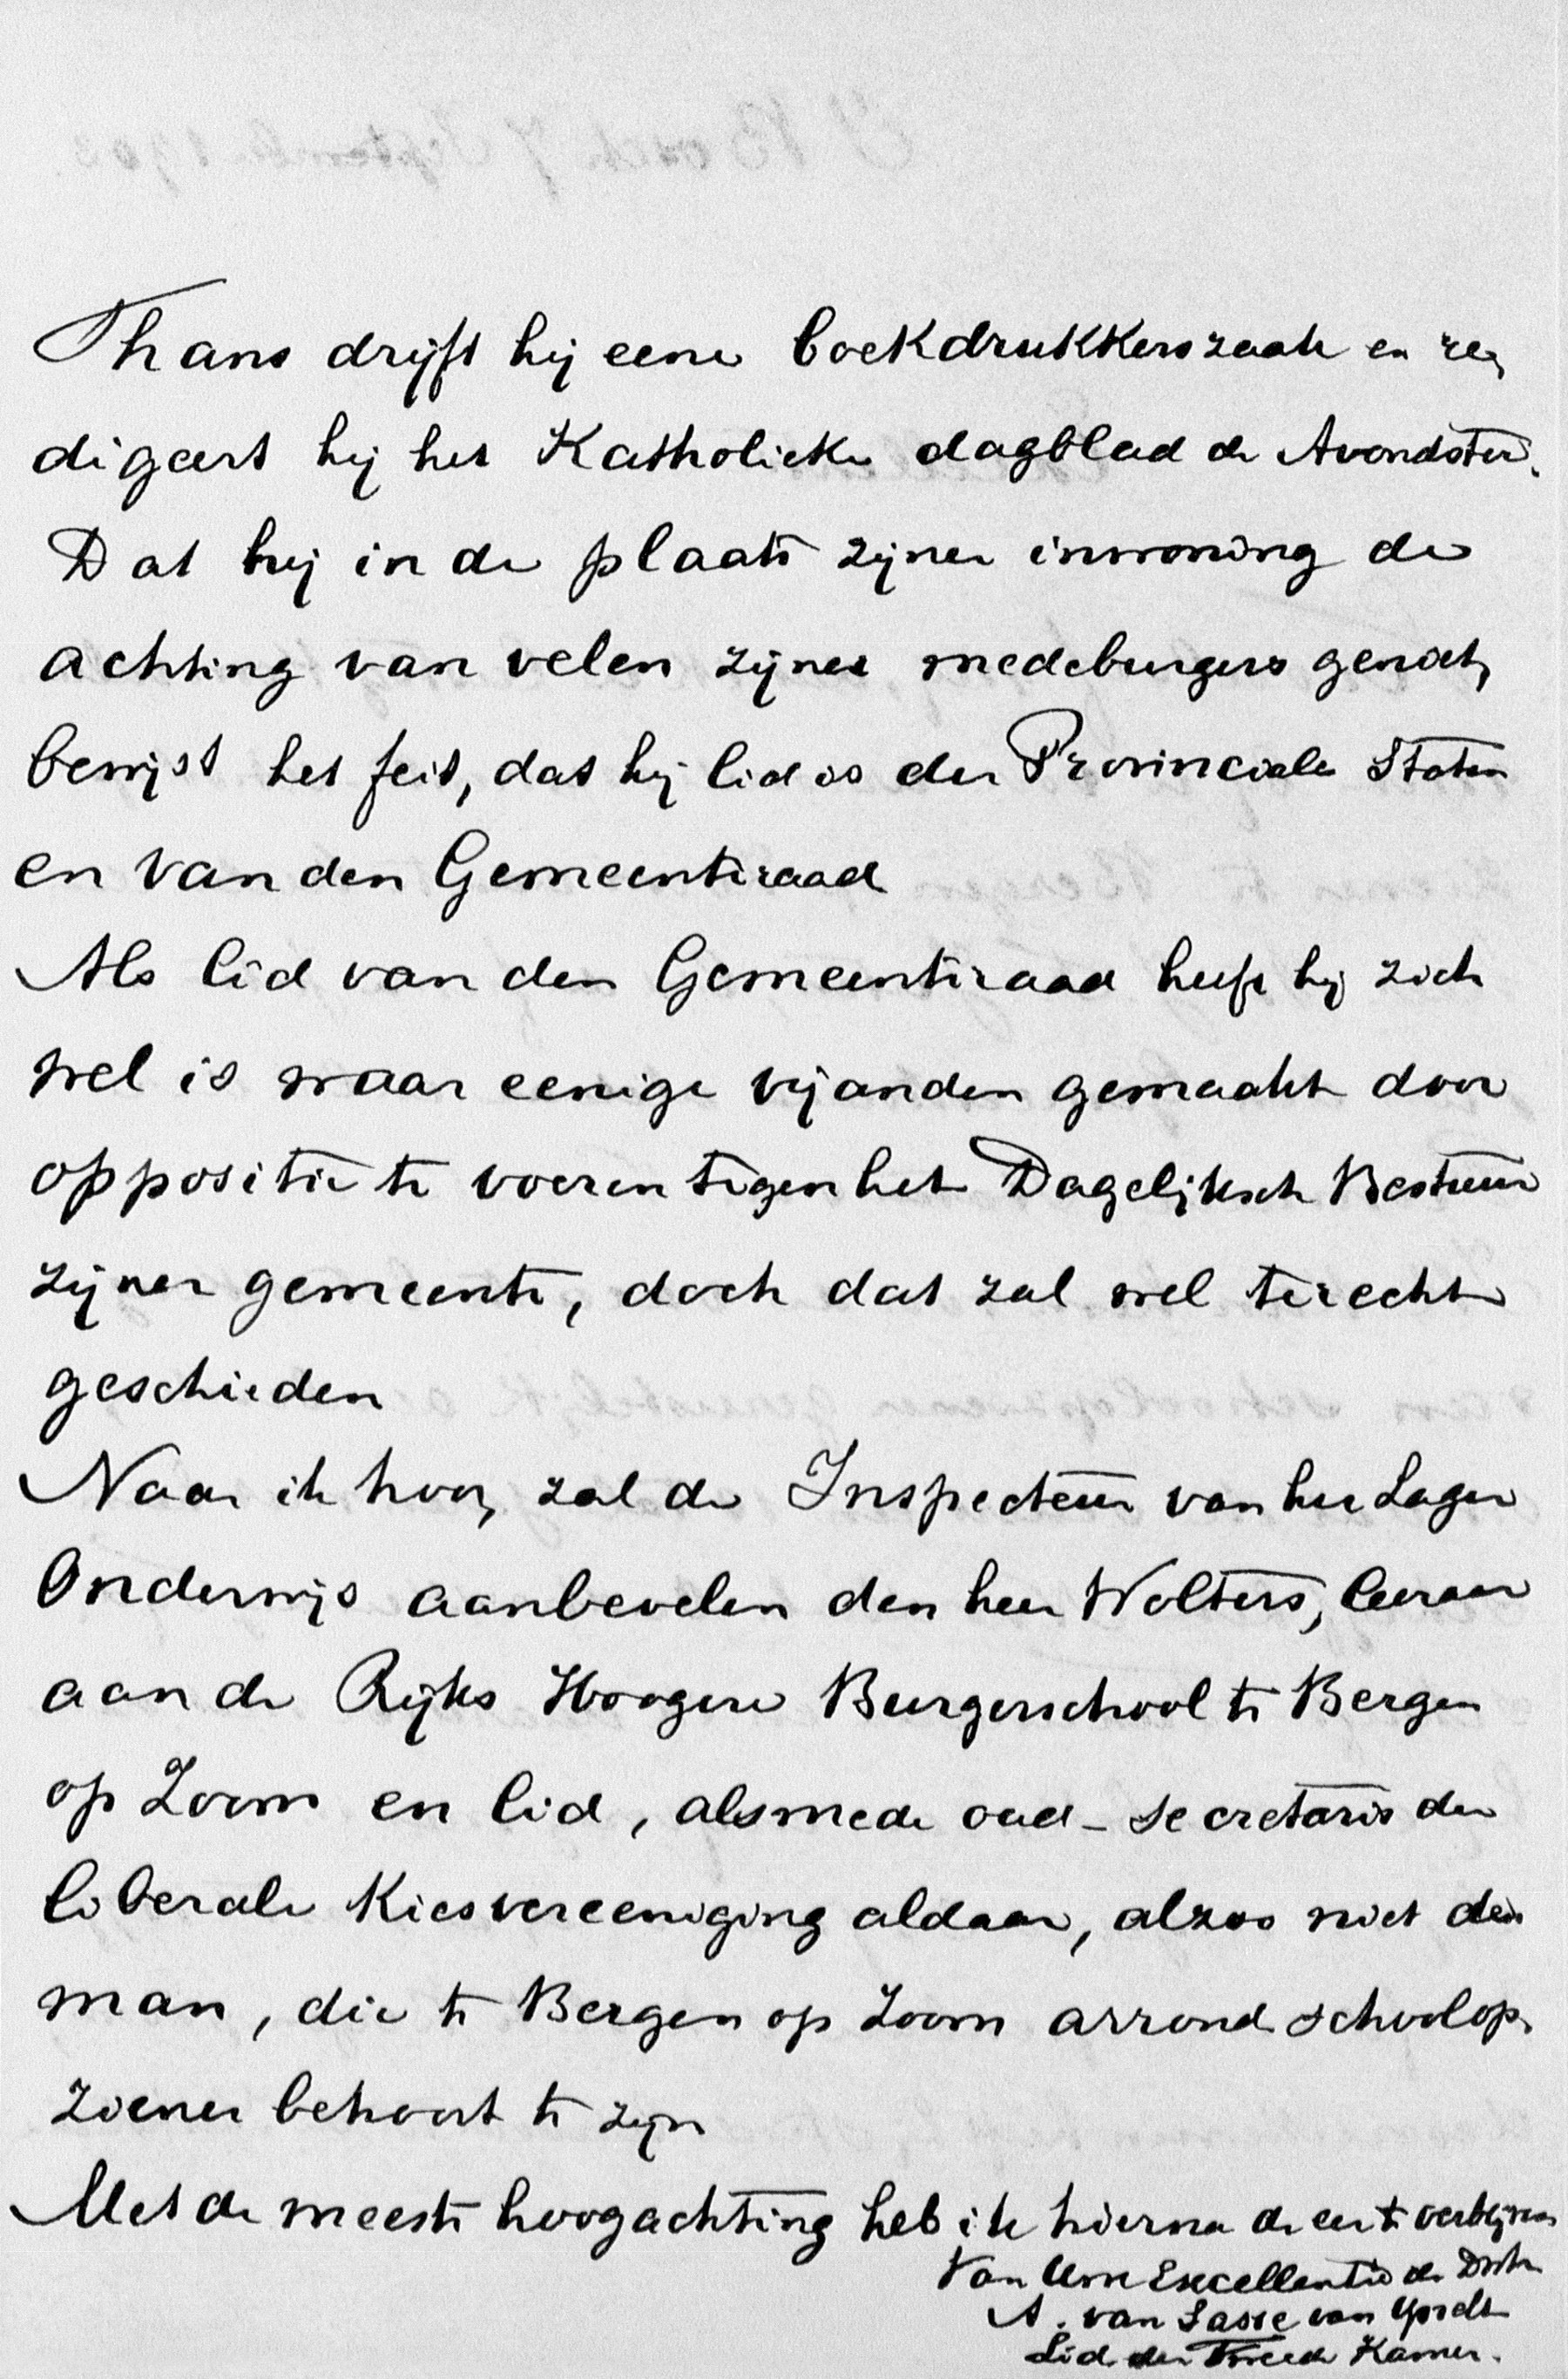 Thans drijft hij eene boekdrukkerszaak en re,
digeert hij het Katholieke dagblad de Avondster.
Dat hij in de plaats zijner inwoning de
achting van velen zijner medeburgers geniet,
bewijst het feit, dat hij lid is der Provinciale Staten
en van den Gemeenteraad
Als lid van den Gemeenteraad heeft hij zich
wel is waar eenige vijanden gemaakt door
oppositie te voeren tegen het Dagelijksch Bestuur
zijner gemeente, doch dat zal wel terecht
geschieden
Naar ik hoor, zal de Inspecteur van het Lager
Onderwijs aanbevelen den heer Wolters, leeraar
aan de Rijks Hoogere Burgerschool te Bergen
op Zoom en lid, alsmede oud-secretaris der
liberale Kiesvereeniging aldaar, alzoo niet de
man, die te Bergen op Zoom arrond schoolop,
ziener behoort te zijn
Met de meeste hoogachting heb ik hierna de eer te verblijven
Van Uwe Excellentie de
A. van Sasse van Ysselt
Lid der Tweede Kamer.